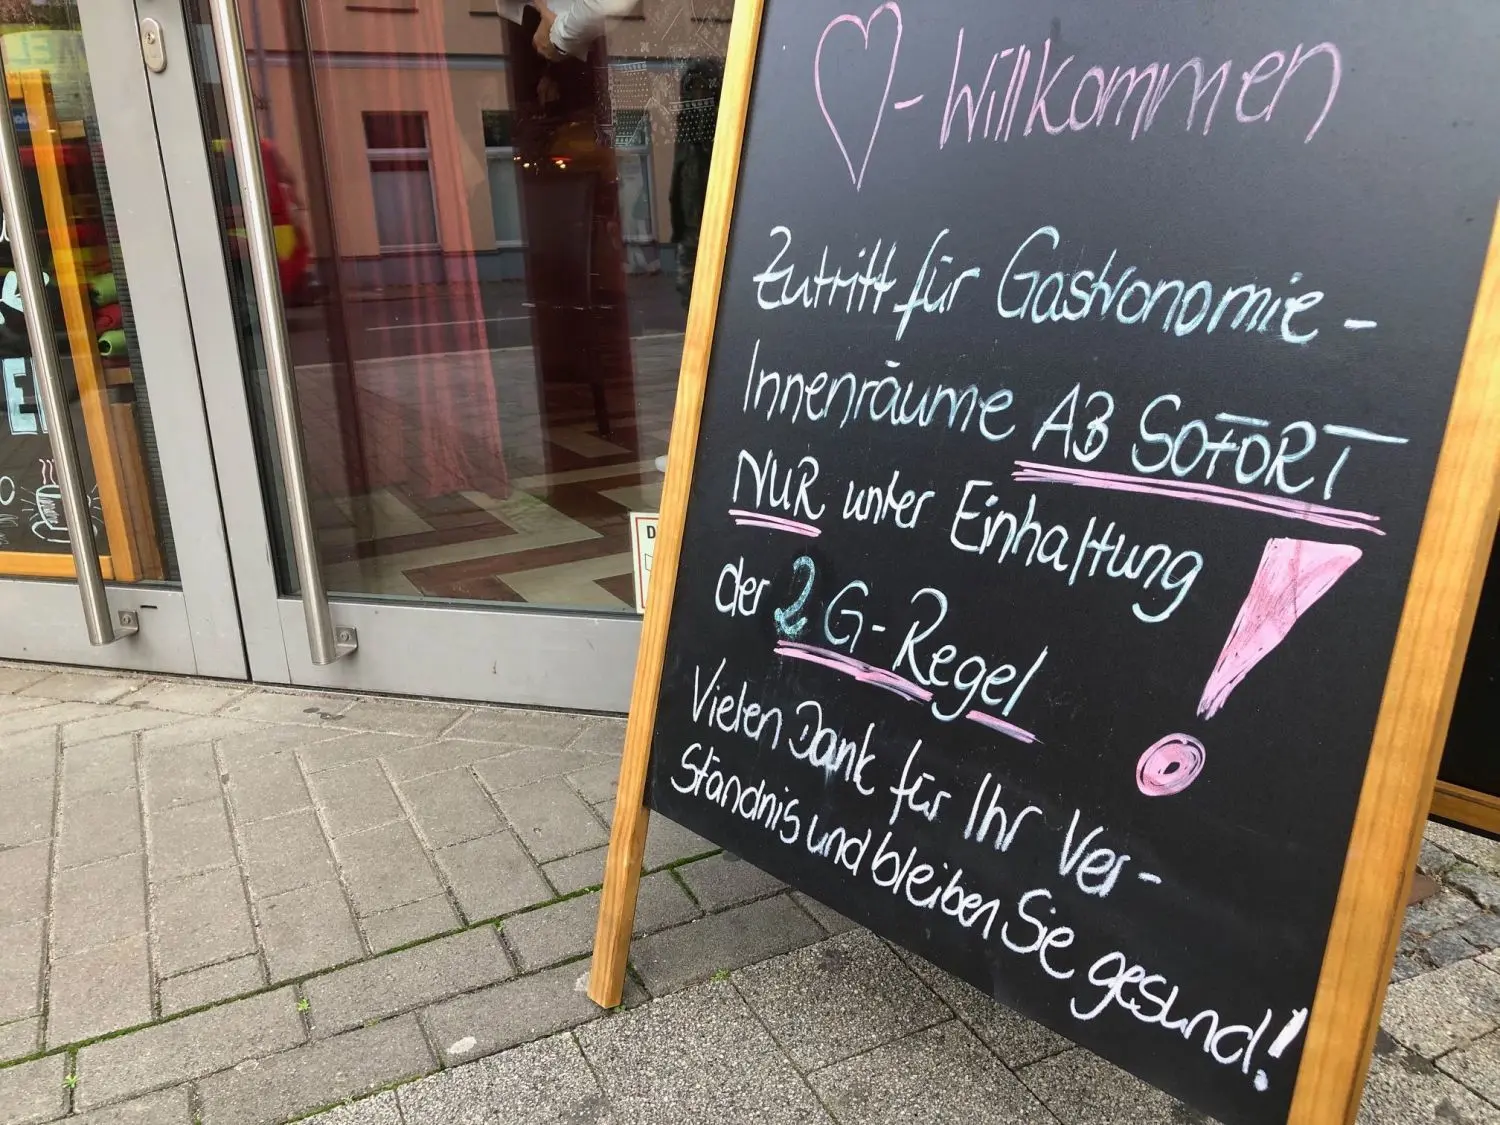 ♡-Willkommen
Zutritt für Gastronomie-
Innenräume AB SOFORT
NUR unter Einhaltung
der 2G-Regel !
Vielen Dank für Ihr Ver-
ständnis und bleiben Sie gesund!